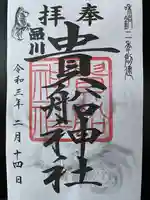 奉拝
品川
貴船神社
令和三年二月十四日